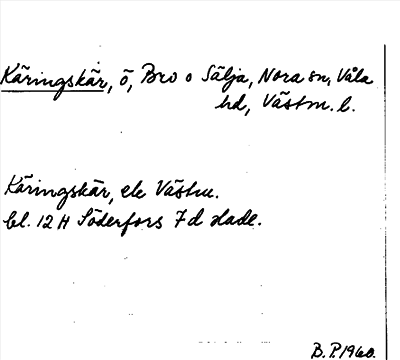 Käringskär, ö, Bro o Sälja, Nora sn, Våla
hd, Västm. l.
Käringskär, ek Västm.
bl. 12 H Söderfors 7 d
B. P. 1960.